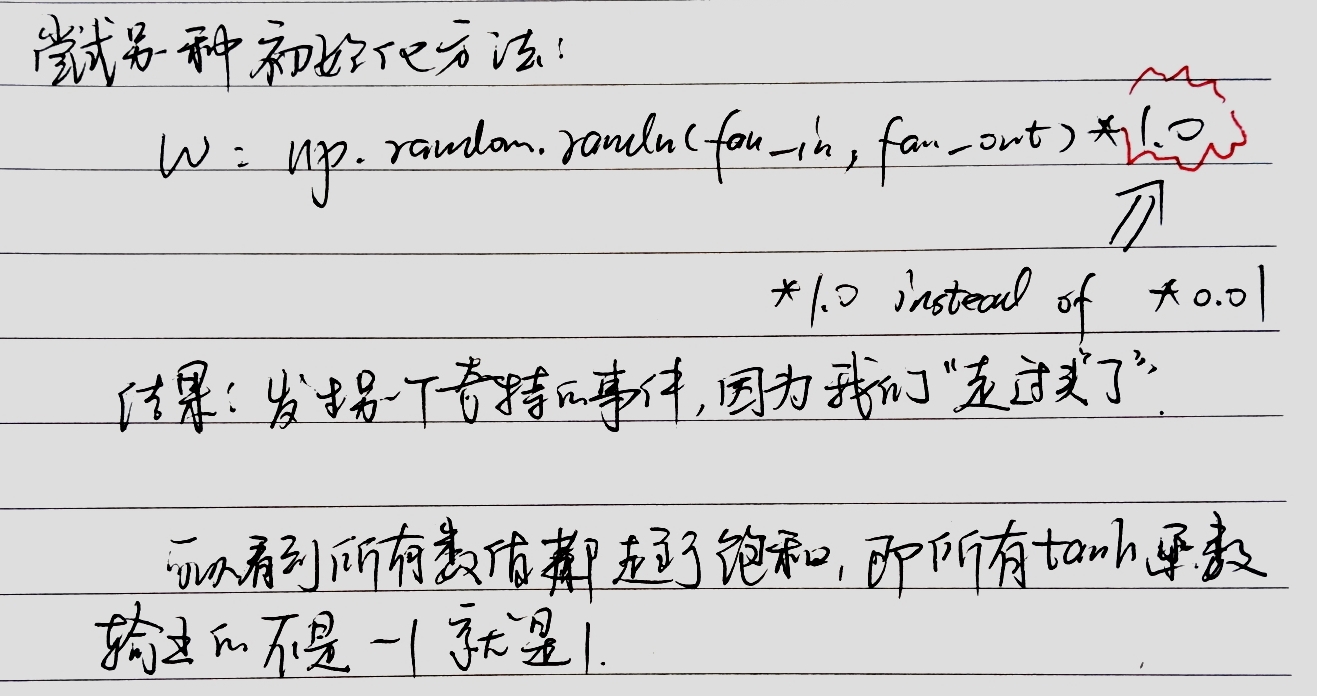 尝试另一种初始化方法:
W = np.random.randn(fan_in, fan_out) * 1.0
*1.0 instead of *0.01
结果: 发生另一个奇特的事件,因为我们“走过头了”.
可以看到所有数值都走到了饱和,即所有tanh函数
输出的不是 -1 就是1.